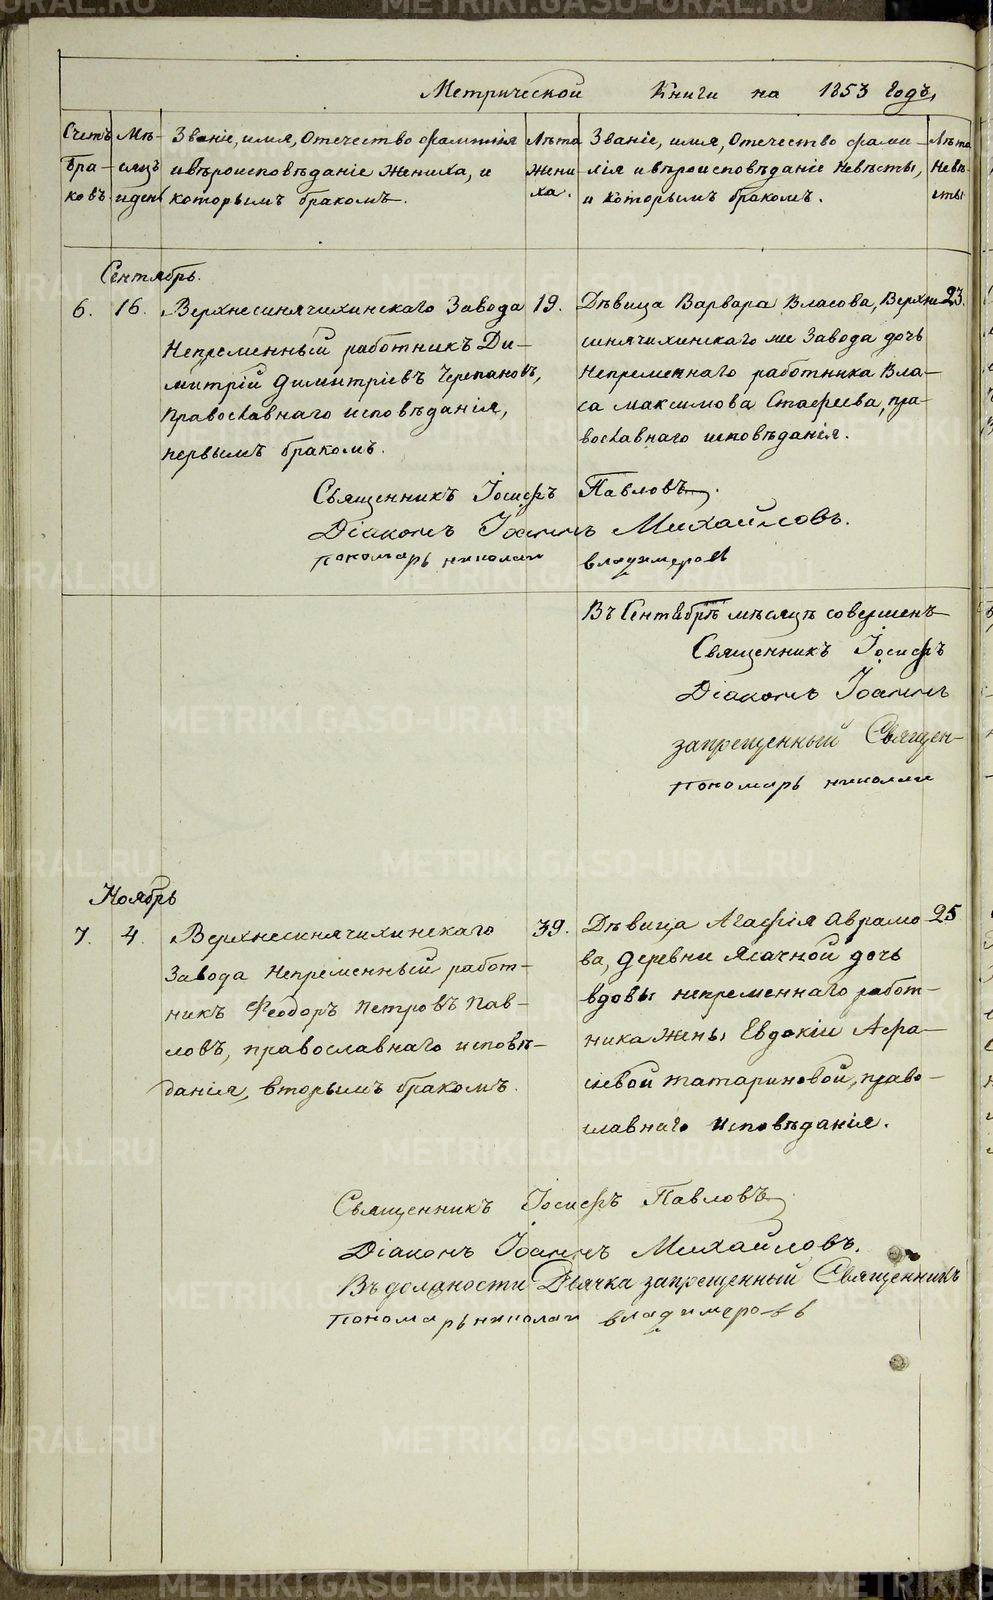 Метрической Книги на 1853 годъ,
Счетъ браковъ
Мѣсяцъ и день
Званіе, имя, Отечество фамилія
и вѣроисповѣданіе Жениха, и
которымъ бракомъ.
Лѣта
Жени-
ха.
Званіе, имя, Отечество фами-
лія и вѣроисповѣданіе Невѣсты,
и которымъ бракомъ.
Лѣта
Невѣ-
сты
Сентябрь.
6. 16. Верхнесинячихинскаго Завода 19.
Непремѣнный работникъ Ди-
митрій Димитріевъ Черепановъ,
Православнаго исповѣданія,
первымъ бракомъ.
Дѣвица Варвара Власова, Верхне- 23.
синячихинскаго же Завода дочь
Непременнаго работника Вла-
са Максимова Стафеева, пра-
вославнаго исповѣданія.
Священникъ Іосифъ Павловъ.
Діаконъ Іоаннъ Михайловъ.
Пономарь николаи владимеровъ
Въ Сентябрѣ мѣсяцѣ совершенъ
Священникъ Іосифъ
Діаконъ Іоаннъ
запрещенный Священ-
Пономарь николаи
Ноябрь
7. 4. Верхнесинячихинскаго 39.
Завода Непремѣнный работ-
никъ Феодоръ Петровъ Пав-
ловъ, православнаго исповѣ-
данія, вторымъ бракомъ.
Дѣвица Агафія Аврамо- 25
ва, деревни Ясачной дочь
вдовы непременнаго работ-
ника жены Евдокіи Афа-
сьевой Татариновой, право-
славнаго исповѣданія.
Священникъ Іосифъ Павловъ
Діаконъ Іоаннъ Михайловъ.
Въ должности Дьячка запрещенный Священникъ
Пономарь николаи владимеровъ
METRIKI.GASO-URAL.RU